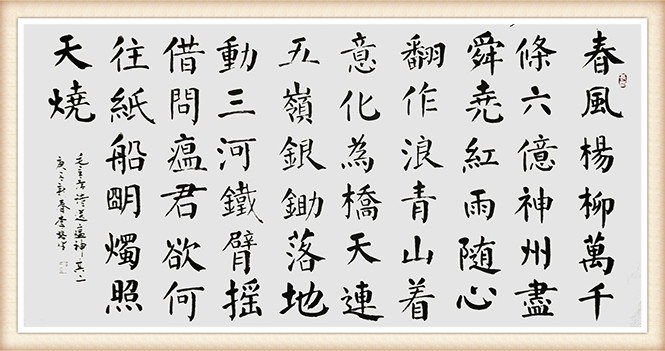 春風楊柳萬千
條六億神州盡
舜堯紅雨随心
翻作浪青山着
意化為橋天連
五嶺銀鋤落地
動三河鐵臂摇
借問瘟君欲何
往紙船朙燭照
天燒
毛主席詩送瘟神其二
庚子新春李